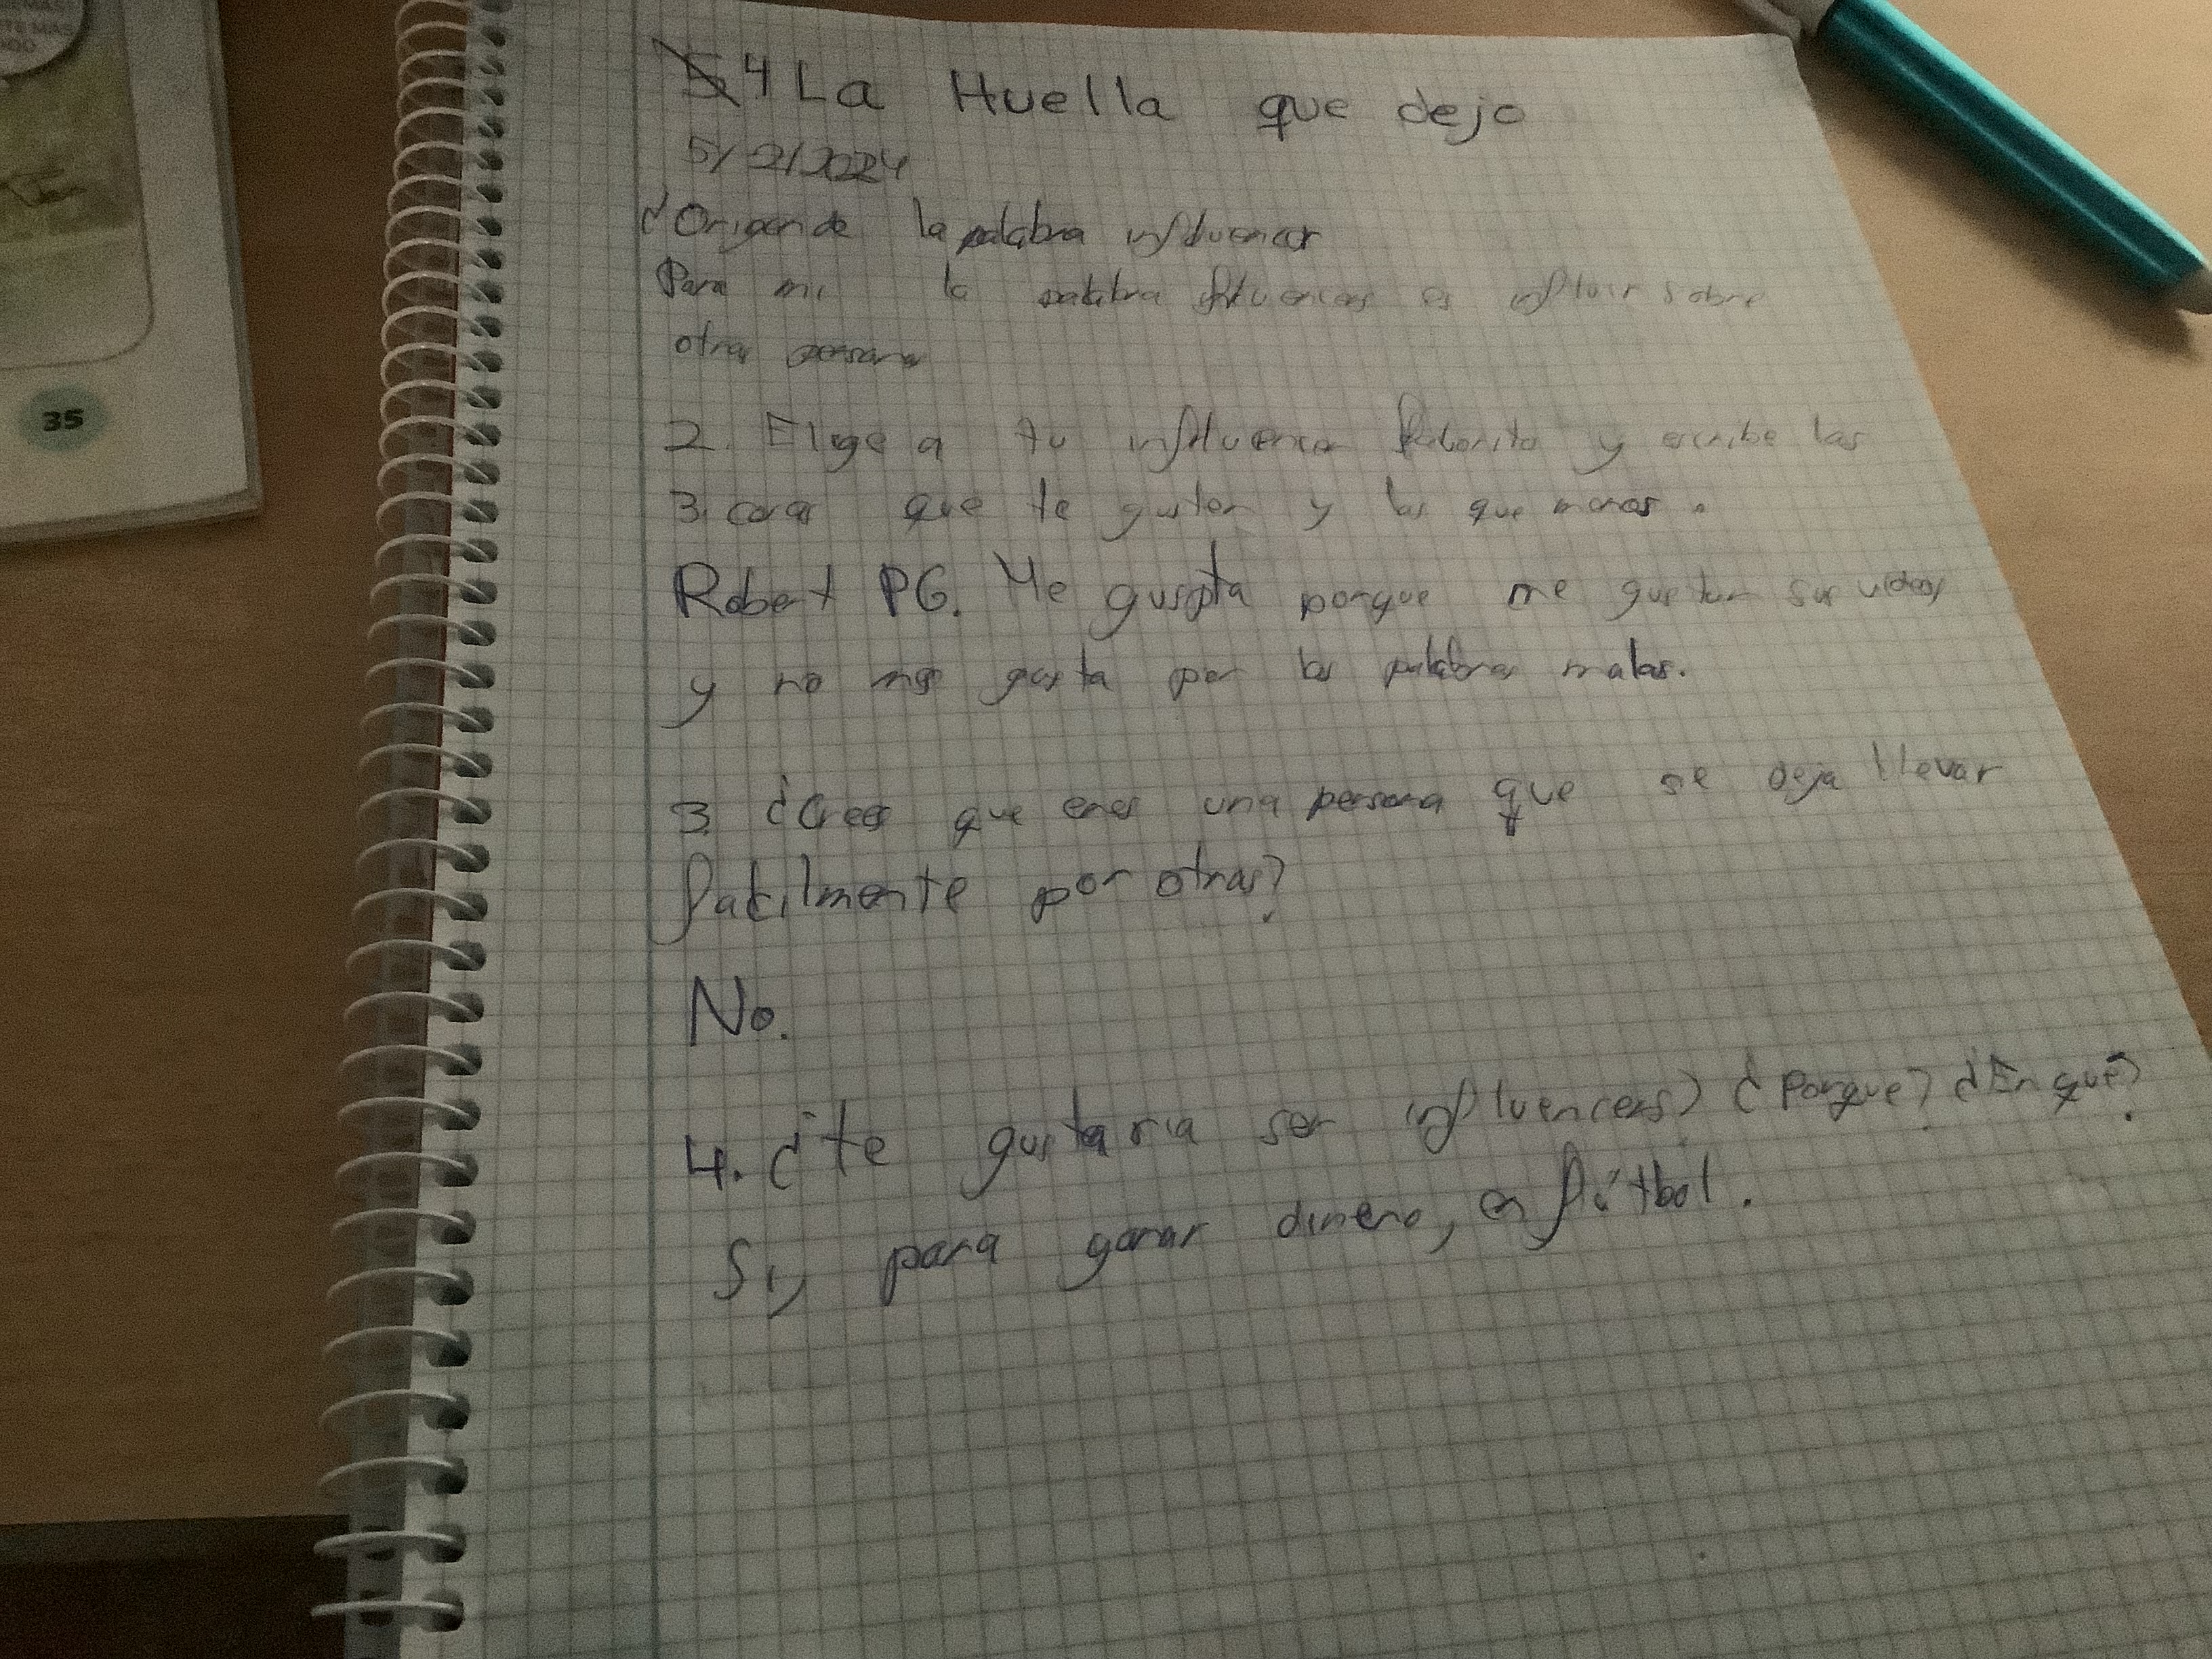 4 La Huella que dejo
5/2/2024
¿Origen de la palabra influencer
Para mi la palabra influencers es influir sobre
otras personas
2. Elige a tu influencer faborito y escribe las
3. cosas que te gusten y las que menos.
Robert PG. Me guspta porque me gustan sus videos
y no me gusta por las palabras malas.
3. ¿Crees que eres una persona que se deja llevar
facilmente por otras?
No.
4. ¿te gustaria ser influencers? ¿Porque? ¿En qué?
Si, para ganar dinero, en fútbol.
35